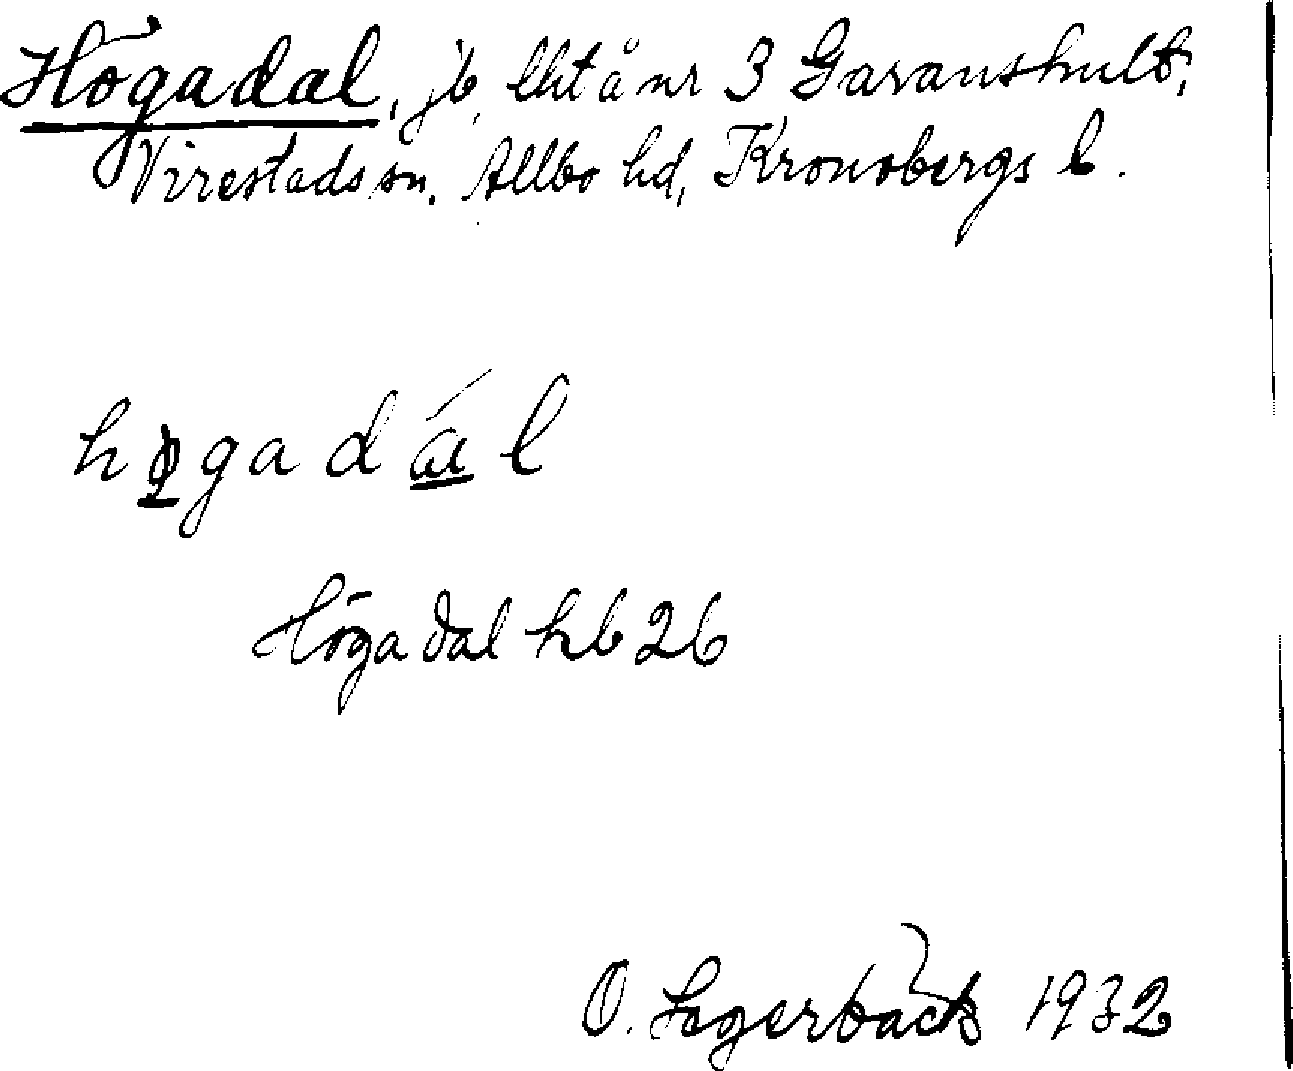 Högadal, jb, lht å nr 3 Garanshult,
Virestads sn. Allbo hd, Kronobergs l.
høgadál
Högadal hb 26
O. Lagerbäck 1932